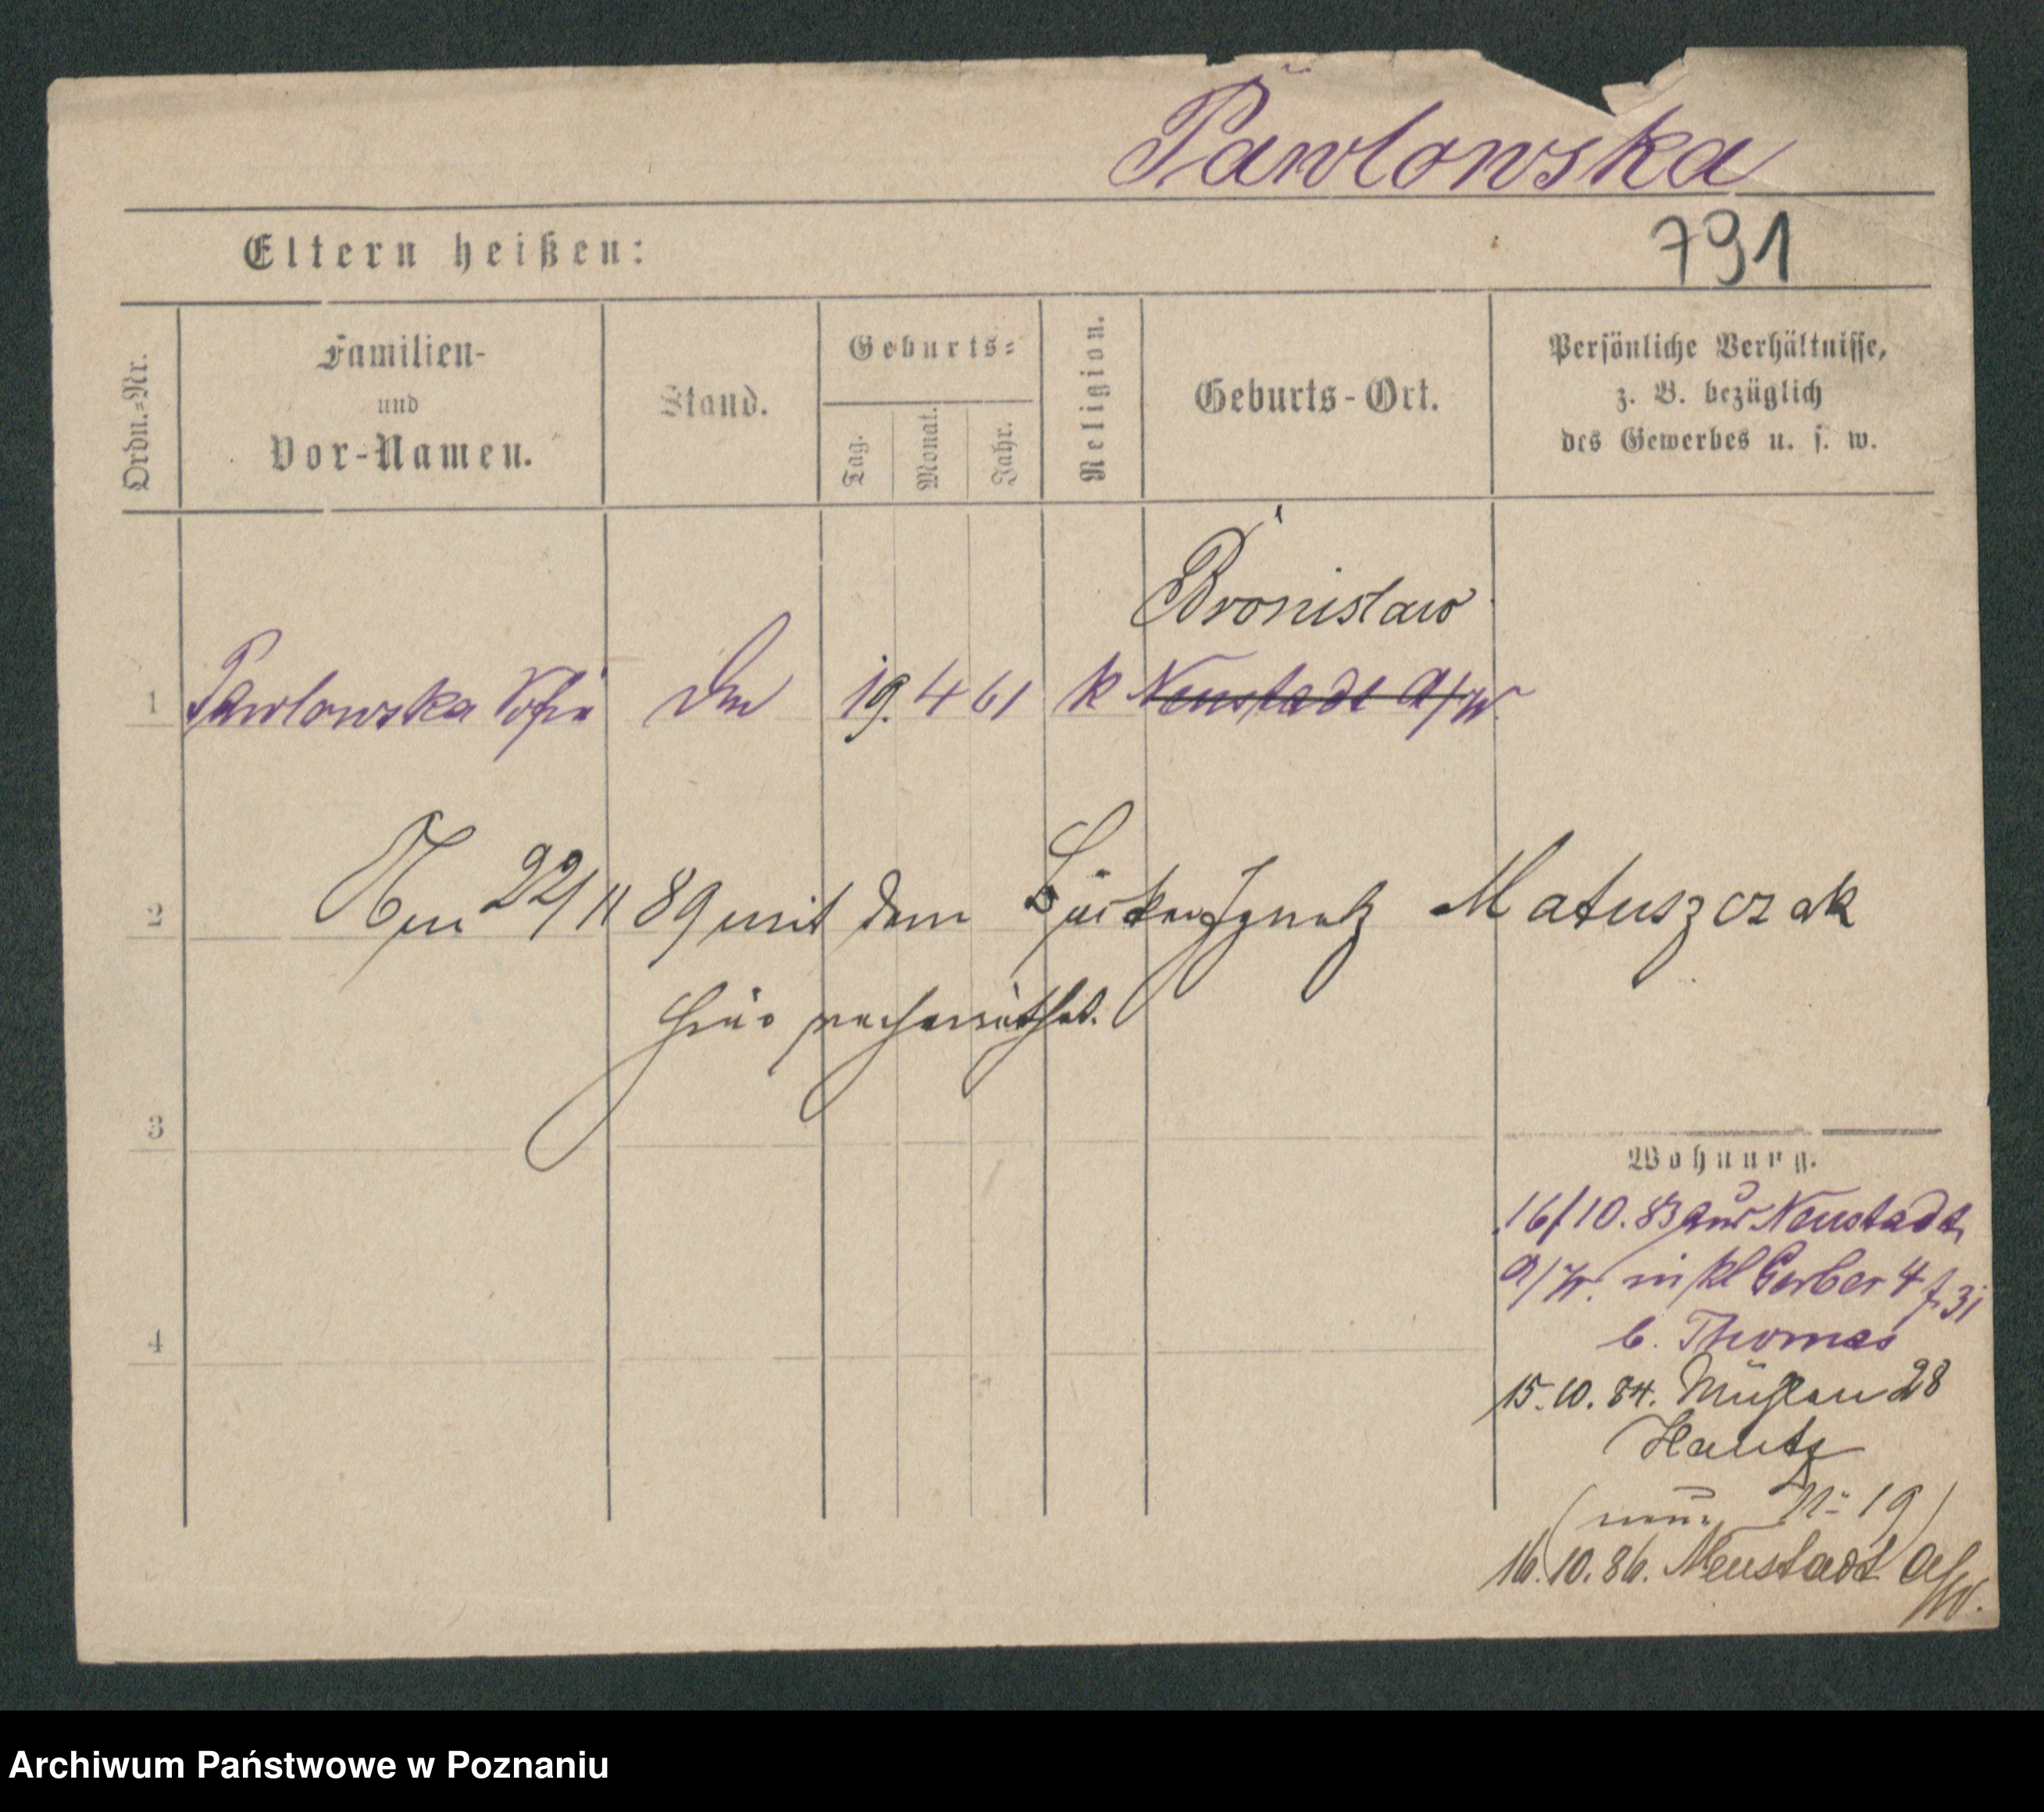 Pawlowska
791
Eltern heißen:
Ordn.-Nr.
Familien-
und
Vor-Namen.
Stand.
Geburts-
Tag.
Monat.
Jahr.
Religion.
Geburts-Ort.
Persönliche Verhältnisse,
z. B. bezüglich
des Gewerbes u. s. w.
Bronislaw
1 Pawlowska Sofia 19. 4 61 k Neustadt a/W.
2 Am 22/11 89 mit dem Bäcker Ignatz Matuszczak
hier verheirathet.
3
Wohnung.
16/10. 83 aus Neustadt
a/W. in kl Gerber 4
4
b. Thomas
15.10.84. Mühlen 28
(neue N: 19)
16.10.86. Neustadt a/W.
Archiwum Państwowe w Poznaniu